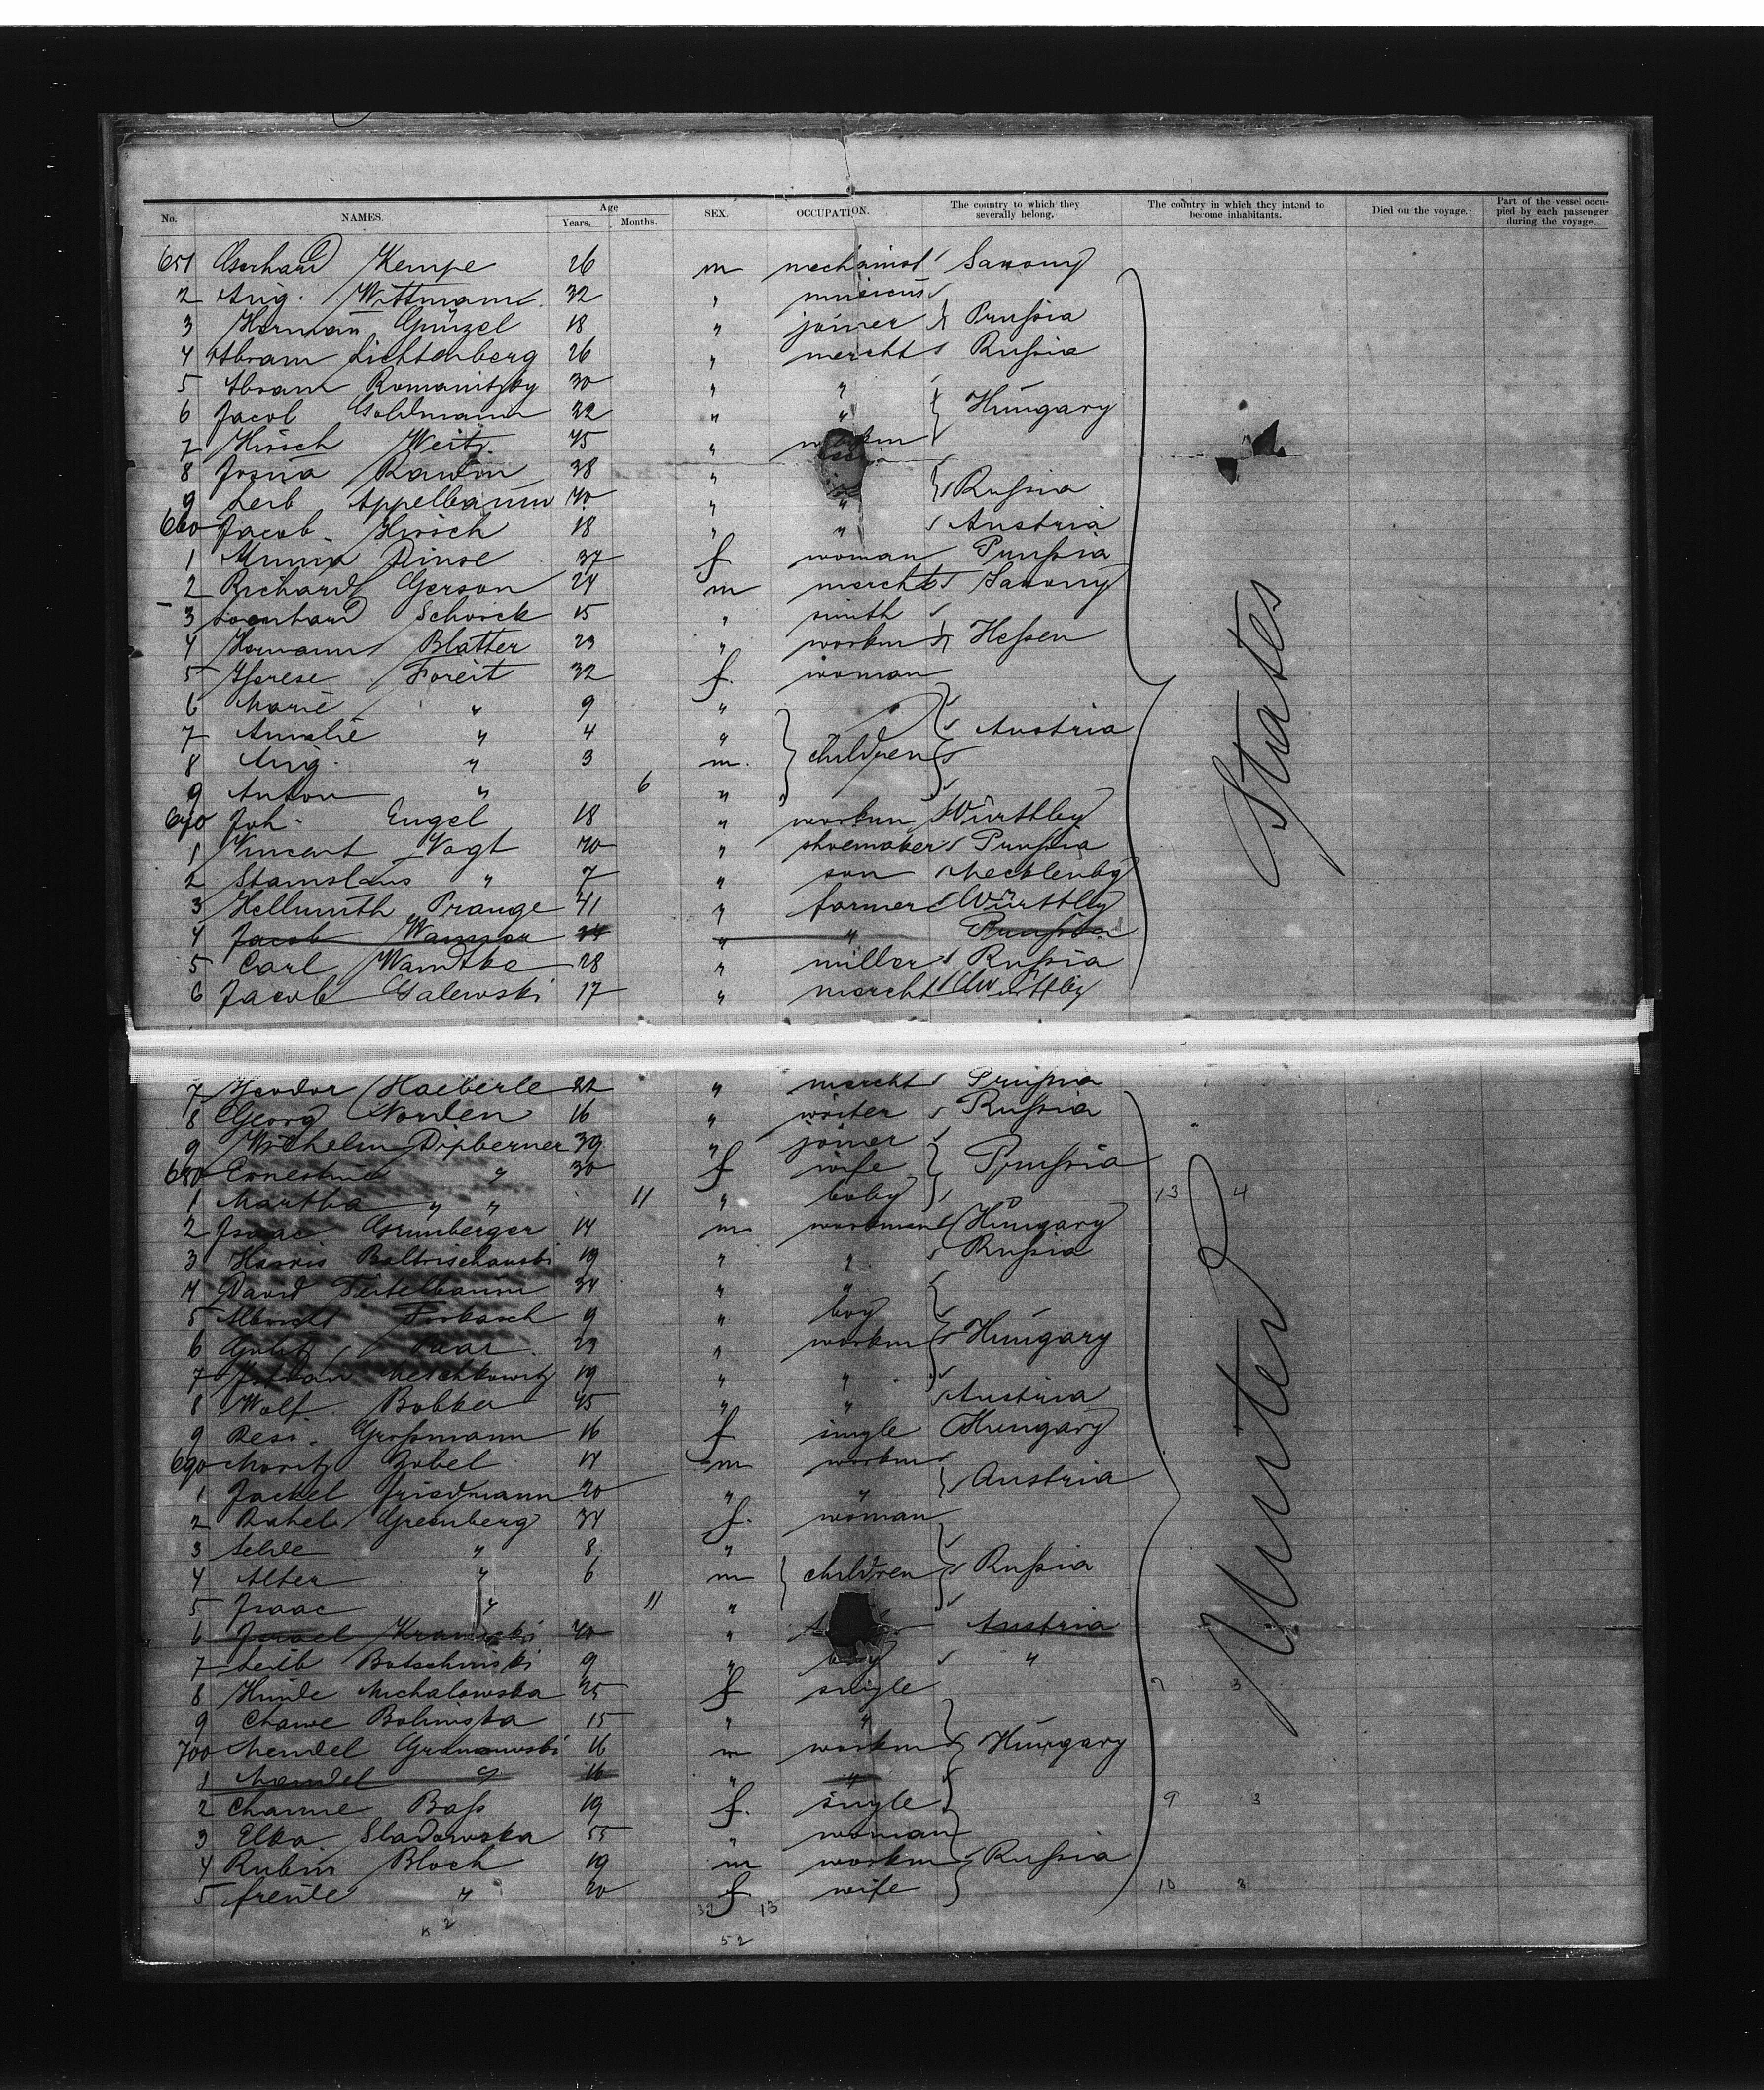 No. NAMES. Age Years. Months. SEX. OCCUPATION. The country to which they severally belong. The country in which they intend to become inhabitants. Died on the voyage. Part of the vessel occupied by each passenger during the voyage.
651 Gerhard Kempe 26 m mechanist Saxony
2 Aug. Wittmann 32 " musicus
3 Herman Günzel 18 " joiner Prußia
4 Abram Lichtenberg 26 " mercht Rußia
5 Abram Romanitzky 30 " "
6 Jacob Goldmann 22 " " Hungary
7 Hirsch Weitz 45 " workm
8 Josua Rawin 38 "
9 Leib Appelbaum 40 " " Rußia
660 Jacob Hirsch 18 " " Austria
1 Minna Dinse 37 f woman Prußia
2 Richard Gerson 24 m mercht Saxony
3 Leonhard Schorck 15 " smith
4 Hermann Blatter 23 " workm Heßen
5 Therese Foreit 32 f. woman
6 Marie " 9 "
7 Amalie " 4 " Austria
8 Aug. " 3 m. children
9 Anton " 6 "
670 Joh. Engel 18 " workm Württbg
1 Vincent Vogt 40 " shoemaker Prußia
2 Stanislaus " 7 " son Mecklenbg
3 Hellmuth Prange 41 " farmer Württbg
4 Jacob " " Prußia
5 Carl Wandtke 28 " miller Rußia
6 Jacob Galewski 17 " mercht Württbg
7 Theodor Haeberle 22 " mercht Prußia
8 Georg Norden 16 " writer Rußia
9 Wilhelm Dipberner 39 " joiner
680 Ernestine " 30 f wife Prußia
1 Martha " " 11 " baby 13 4
2 Isaac Grünberger 14 m workman Hungary
3 Harris Baltrischanski 19 " " Rußia
4 David Teitelbaum 34 " "
5 Albrecht Forbasch 9 " boy
6 Paar 23 " workm Hungary
7 Meschkowitz 19 " "
8 Wolf Bobker 45 " " Austria
9 Resi Großmann 16 f single Hungary
690 Moritz Zobel 14 m workm
1 Jackel Friedmann 20 " " Austria
2 Rahel Greenberg 34 f. woman
3 " 8 "
4 Alter " 6 m children Rußia
5 Isaac " 11 "
6 40 " Austria
7 Leib Botschinski 9 " boy "
8 Hinde Michalowska 25 f single 7 3
9 Chawe Bolinska 15 " "
700 Mendel Granowski 16 m workm Hungary
1 Mendel " 16 " "
2 Channe Baß 19 f. single 9 3
3 Elka Sladowska 55 " woman
4 Rubin Bloch 19 m workm Rußia
5 Freide " 20 f wife 10 3
13
52
United States